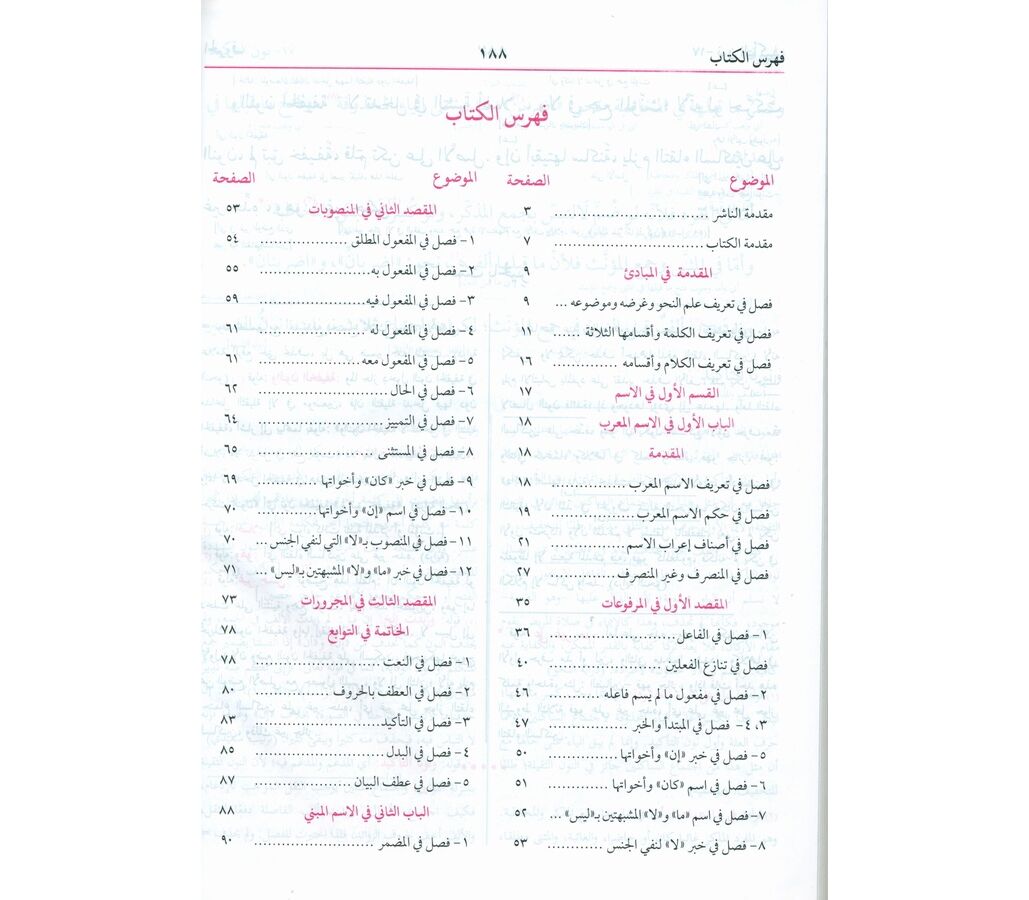 فهرس الكتاب
١٨٨
فهرس الكتاب
الموضوع الصفحة
مقدمة الناشر ................................ ٣
مقدمة الكتاب ............................... ٧
المقدمة في المبادئ ٩
فصل في تعريف علم النحو وغرضه وموضوعه ... ٩
فصل في تعريف الكلمة وأقسامها الثلاثة ...... ١١
فصل في تعريف الكلام وأقسامه .............. ١٦
القسم الأول في الاسم ١٧
الباب الأول في الاسم المعرب ١٨
المقدمة ١٨
فصل في تعريف الاسم المعرب ................ ١٨
فصل في حكم الاسم المعرب ................. ١٩
فصل في أصناف إعراب الاسم ............... ٢١
فصل في المنصرف وغير المنصرف ............. ٢٧
المقصد الأول في المرفوعات ٣٥
١- فصل في الفاعل .......................... ٣٦
فصل في تنازع الفعلين ....................... ٤٠
٢- فصل في مفعول ما لم يسم فاعله ........... ٤٦
٣، ٤- فصل في المبتدأ والخبر ................ ٤٧
٥- فصل في خبر «إن» وأخواتها .............. ٥٠
٦- فصل في اسم «كان» وأخواتها ............. ٥١
٧- فصل في اسم «ما» و«لا» المشبهتين بـ«ليس» ... ٥٢
٨- فصل في خبر «لا» لنفي الجنس ............ ٥٣
الموضوع الصفحة
المقصد الثاني في المنصوبات ٥٣
١- فصل في المفعول المطلق .................. ٥٤
٢- فصل في المفعول به ....................... ٥٥
٣- فصل في المفعول فيه ...................... ٥٩
٤- فصل في المفعول له ....................... ٦١
٥- فصل في المفعول معه ..................... ٦١
٦- فصل في الحال ........................... ٦٢
٧- فصل في التمييز .......................... ٦٤
٨- فصل في المستثنى ........................ ٦٥
٩- فصل في خبر «كان» وأخواتها ............. ٦٩
١٠- فصل في اسم «إن» وأخواتها ............. ٧٠
١١- فصل في المنصوب بـ«لا» التي لنفي الجنس ... ٧٠
١٢- فصل في خبر «ما» و«لا» المشبهتين بـ«ليس» ... ٧١
المقصد الثالث في المجرورات ٧٣
الخاتمة في التوابع ٧٨
١- فصل في النعت .......................... ٧٨
٢- فصل في العطف بالحروف ................. ٨٠
٣- فصل في التأكيد .......................... ٨٣
٤- فصل في البدل ........................... ٨٥
٥- فصل في عطف البيان .................... ٨٧
الباب الثاني في الاسم المبني ٨٨
١- فصل في المضمر ......................... ٩٠